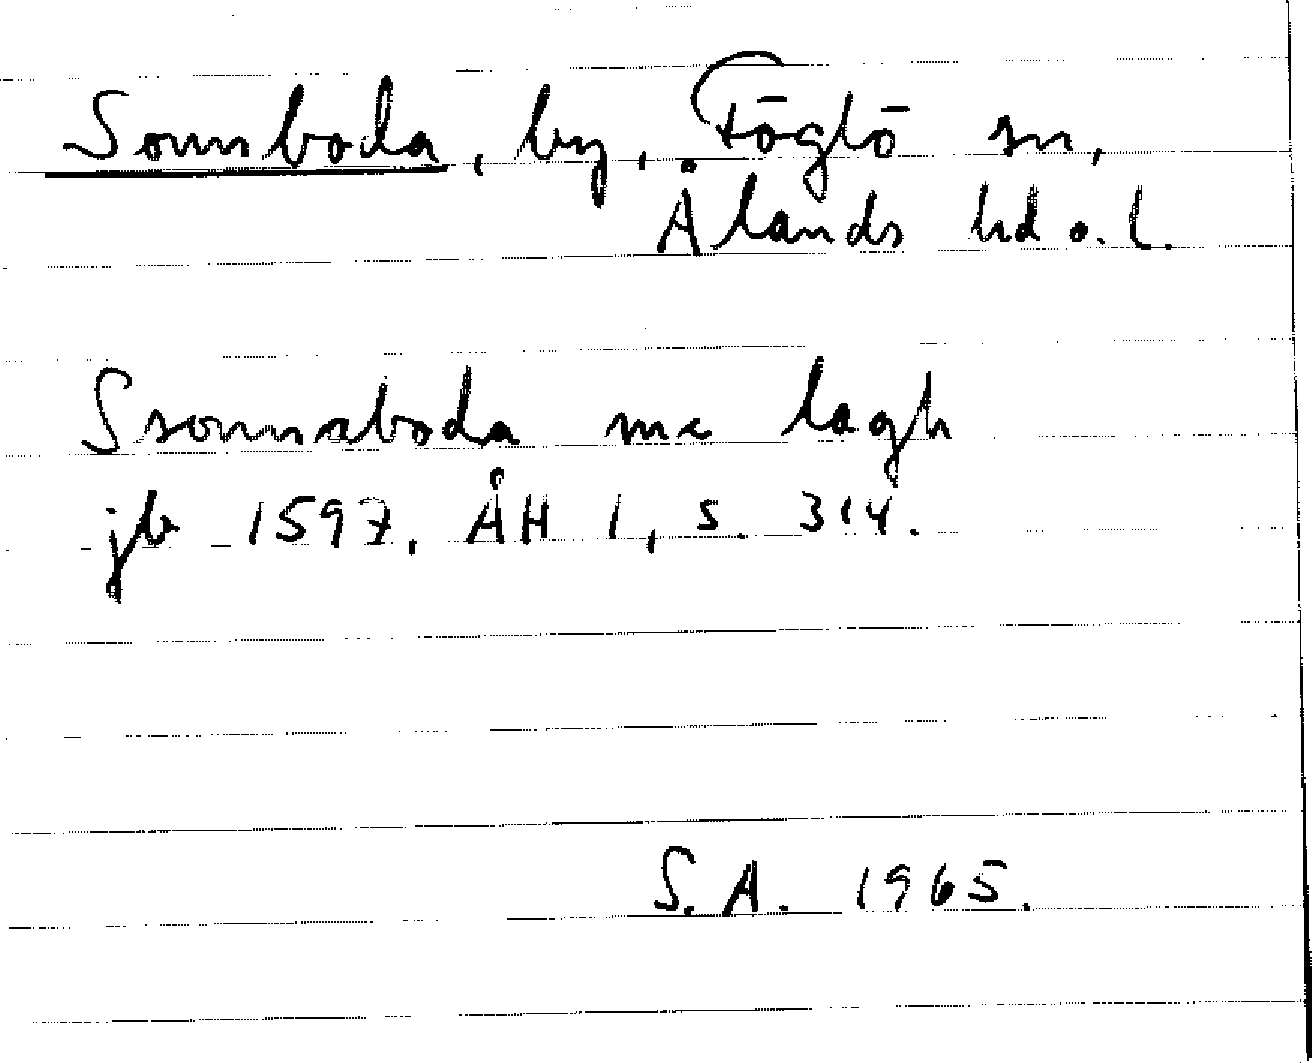 Sonnboda, by, Föglö sn,
Ålands hd o. l.
Ssonnaboda me lagh
jb 1597, ÅH 1, s. 314.
S.A. 1965.